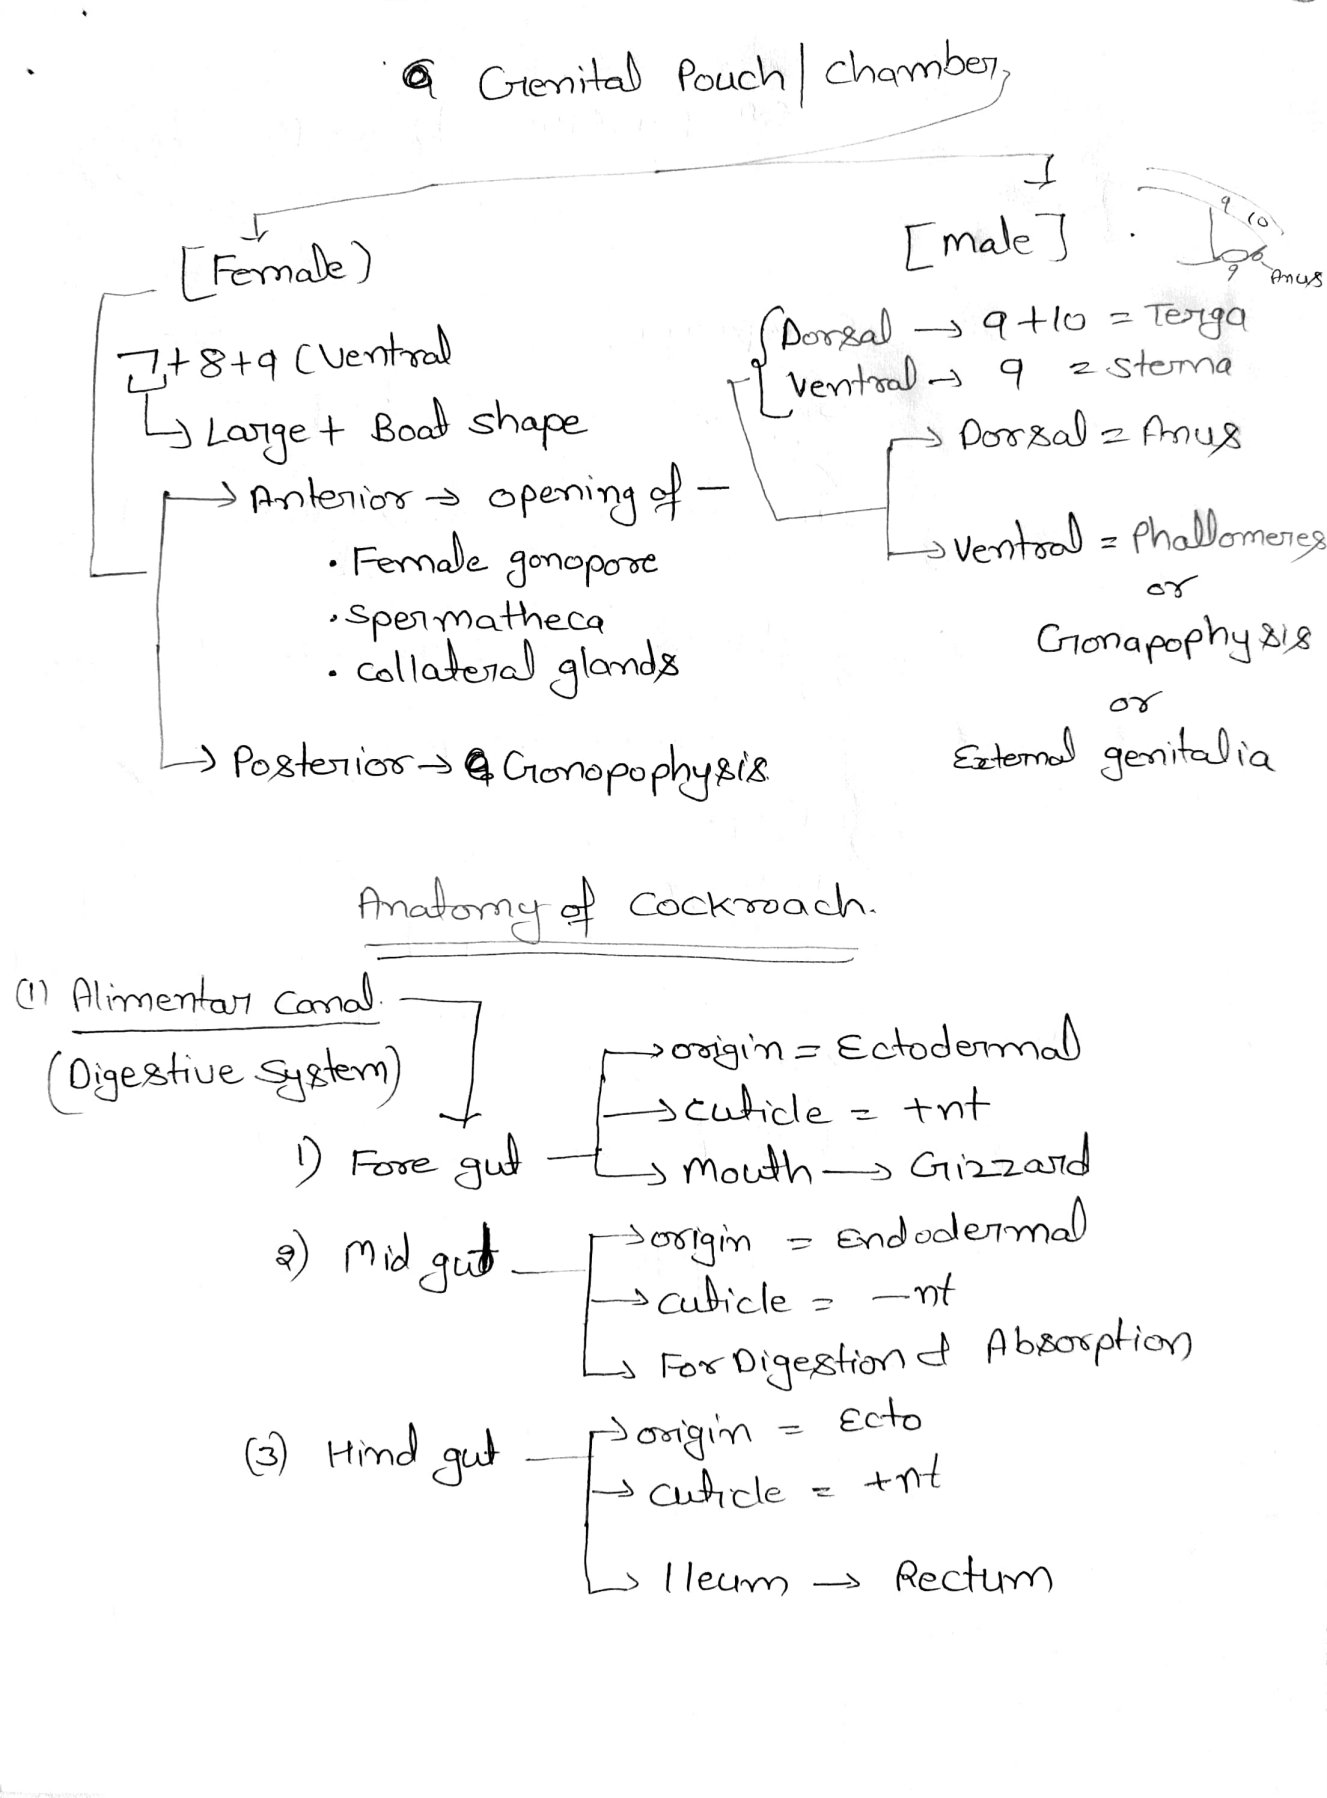 Genital Pouch | chamber,
[Female)
[male]
9 10
9
Anus
7+8+9 (Ventral
↳ Large + Boat shape
→ Anterior → opening of –
• Female gonopore
• spermatheca
• collateral glands
→ Posterior → Gonopophysis
Dorsal → 9+10 = Terga
Ventral → 9 = sterna
→ Dorsal = Anus
→ Ventral = Phallomeres
or
Gonapophysis
or
External genitalia
Anatomy of Cockroach.
(1) Alimentar Canal.
(Digestive System)
1) Fore gut
→ origin = Ectodermal
→ cuticle = +nt
→ Mouth → Gizzard
2) Mid gut
→ origin = Endodermal
→ cuticle = –nt
→ For Digestion & Absorption
(3) Hind gut
→ origin = Ecto
→ cuticle = +nt
→ Ileum → Rectum